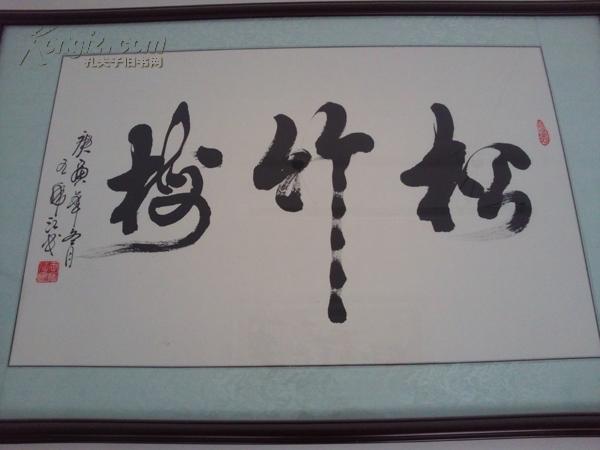 松竹梅
庚寅年冬月
Kongfz.com
孔夫子旧书网